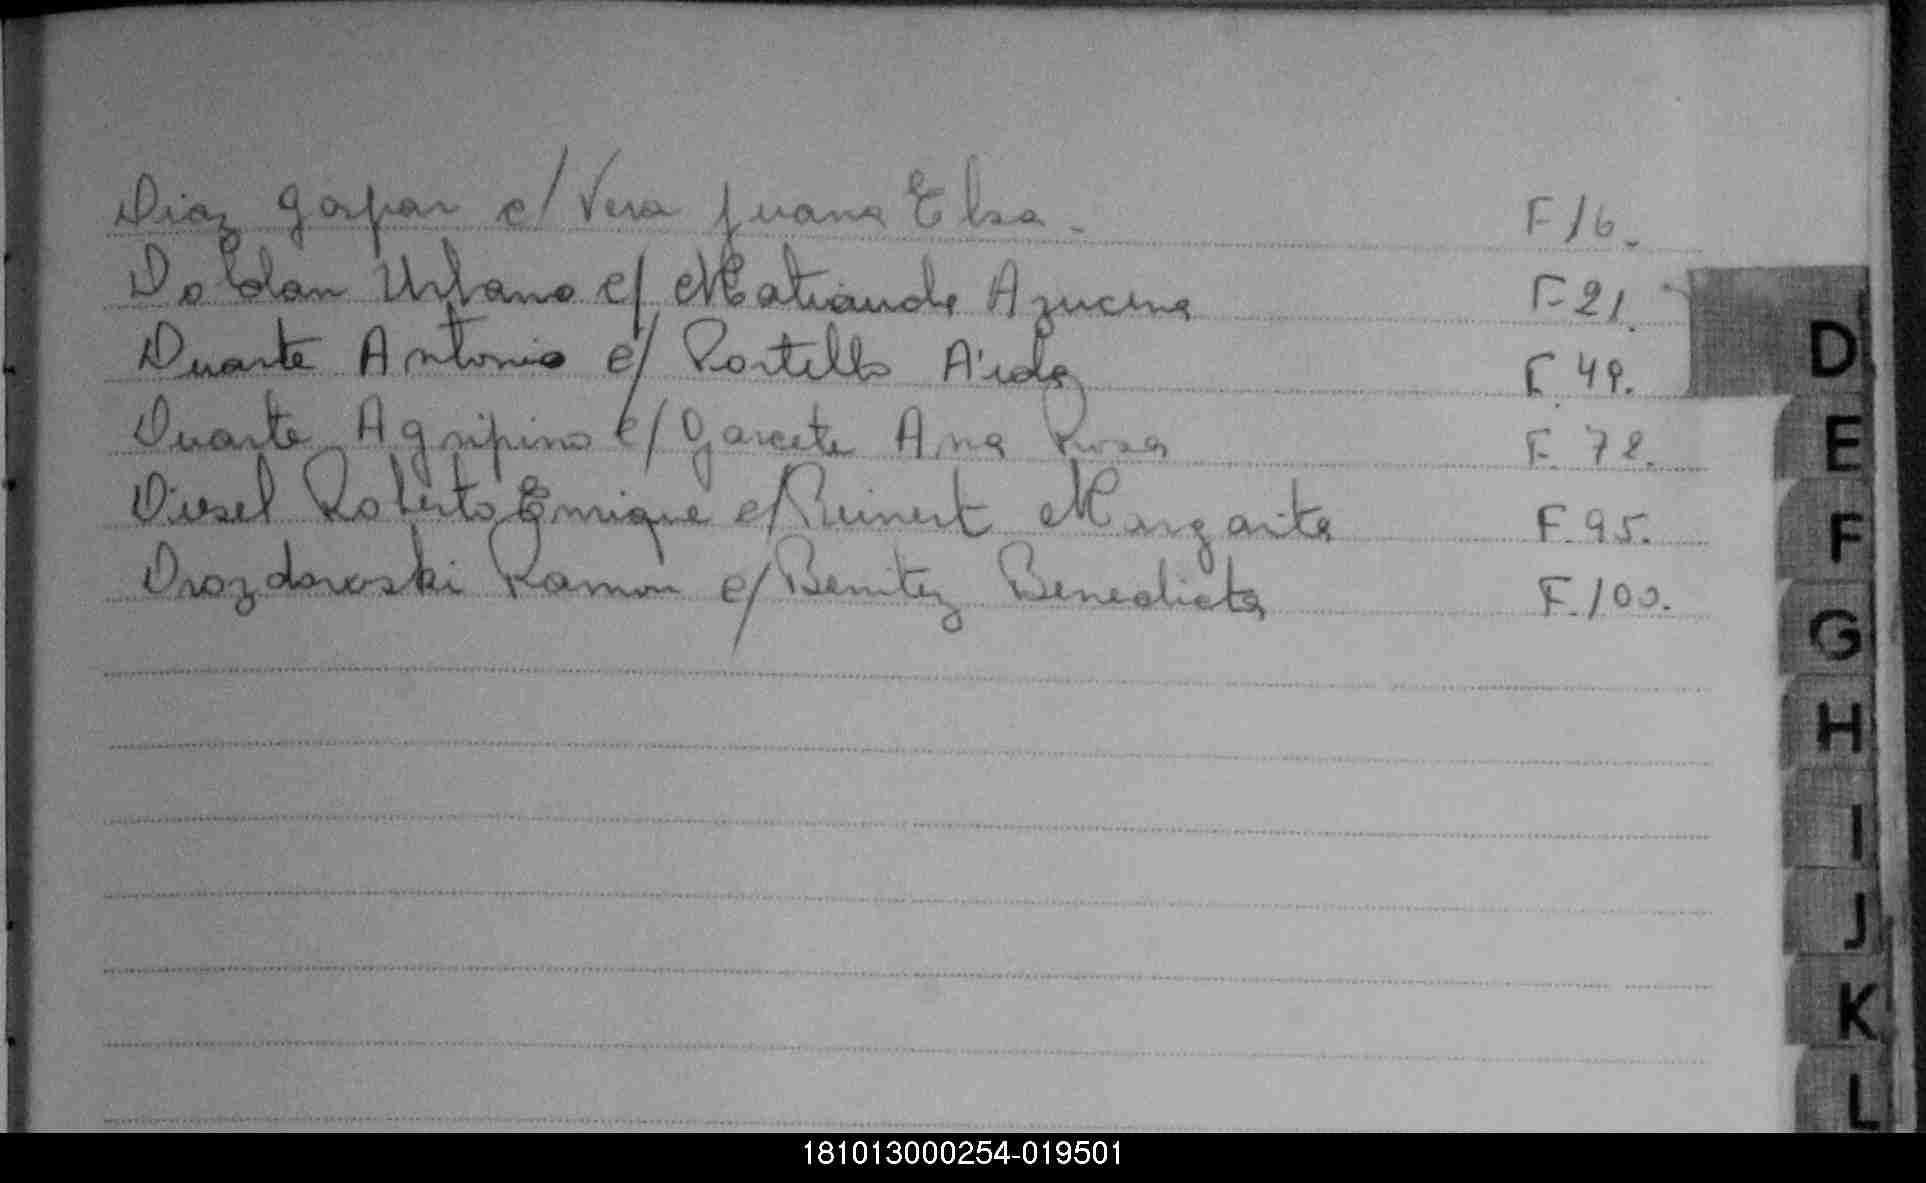 Diaz Gaspar c/ Vera Juana Elsa. F 16.
Doldan Urbano c/ Matiauda Azucena F 21.
Duarte Antonio c/ Portillo Aida F. 49.
Duarte Agripino c/ Garcete Ana Rosa F. 72.
Diesel Roberto Enrique c/ Reinert Margarita F. 95.
Drozdowski Ramon c/ Benitez Benedicta F. 100.
D
E
F
G
H
I
J
K
L
181013000254-019501